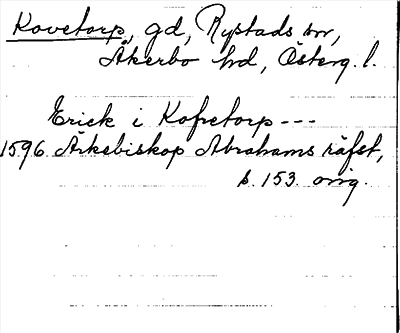 Kovetorp, gd, Rystads sn,
Åkerbo hd, Österg. l.
Erick i Kofvetorp ---
1596 Ärkebiskop Abrahams räfst,
s. 153. orig.